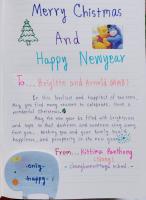 Merry Chistmas
And
Happy Newyear
To... Brigitte and Arnold
In this festive and happiest of seasons,
May you find many reasons to celebrate. Have a
wonderful Christmas.
May the new year be filled with brightness
and hope so that darkness and sadness stay away
from you. Wishing you and your family
happiness, and prosperity in the new year
From... Kittima Panthong
(Song)
only
happy
school